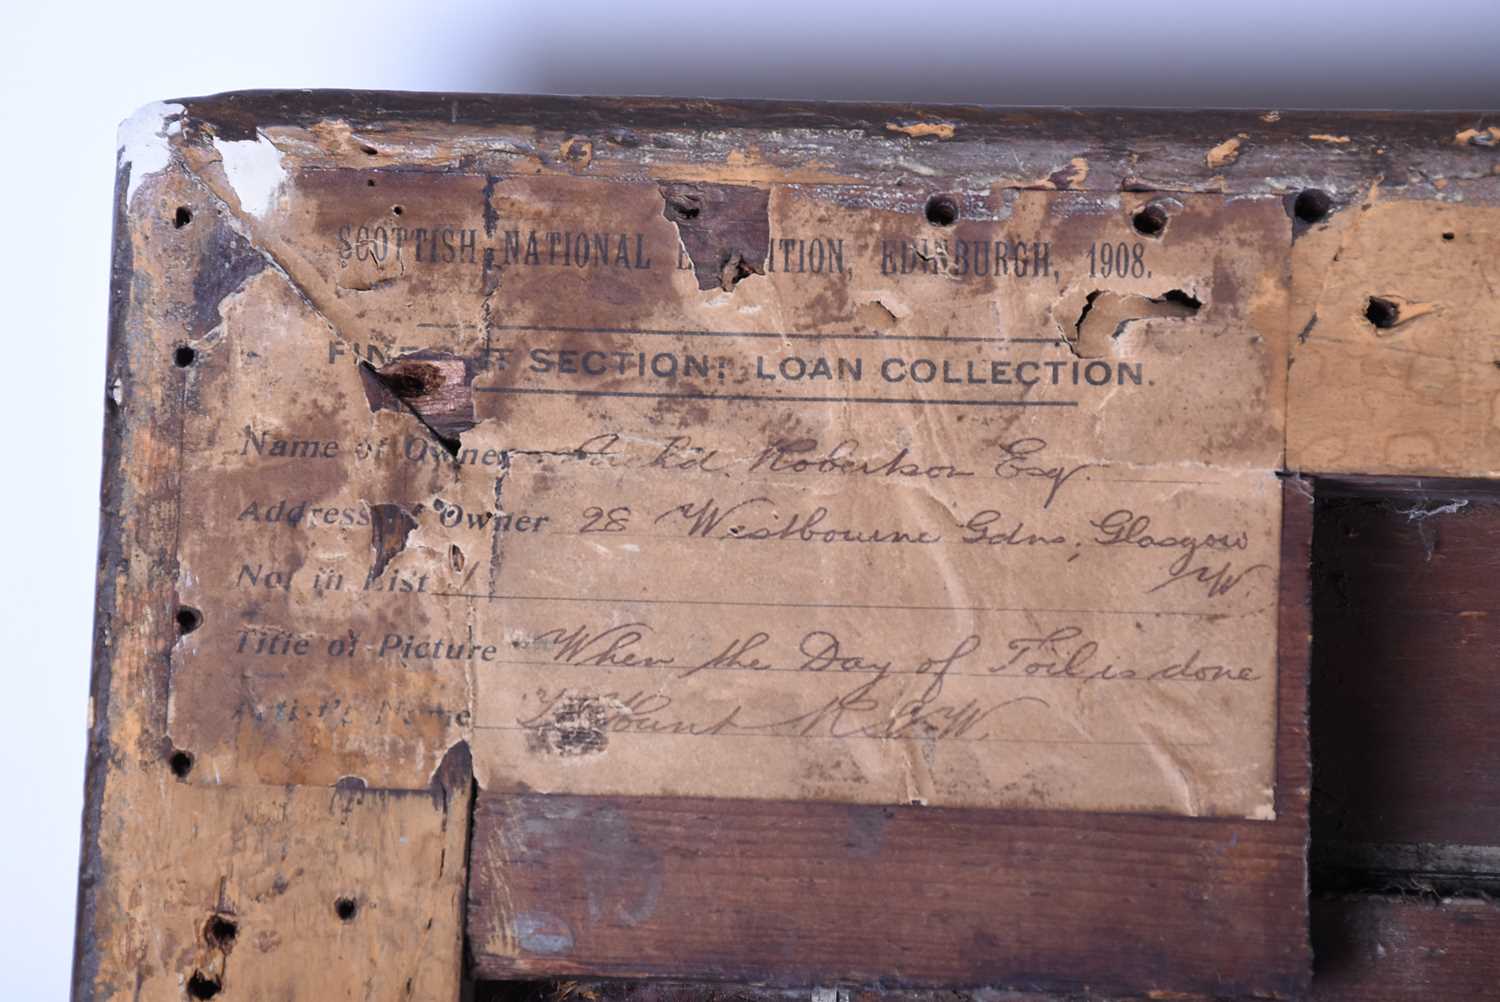 SCOTTISH NATIONAL E ITION, EDINBURGH, 1908.
FINE SECTION: LOAN COLLECTION.
Name of Owner Archd. Robertson Esq.
Address of Owner 28 Westbourne Gdns, Glasgow
W.
No. in List 1
Title of Picture When the Day of Toil is done
Artist's Name Hunt R.S.W.